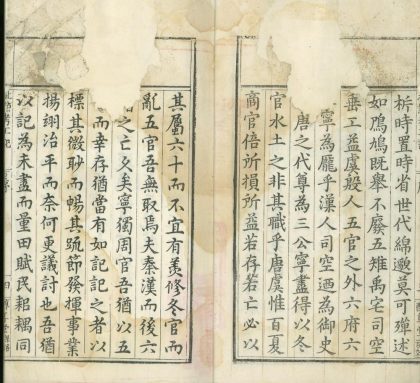 枿時置時省世代綿邈莫可殫述
如鳲鳩既舉不廢五雉禹宅司空
垂工益虞般人五官之外六府六
寧為龐乎漢人司空迺為御史
唐之代尊為三公寧盡得以冬
官水土之非其職乎唐虞惟百夏
商官倍所損所益若存若亡必以
其屬六十而不宜有羨修冬官而
亂五官吾無取焉夫秦漢而後六
之亡夊矣寧獨周官吾猶以五
而幸存猶當有如記記之者以
標其微眇而暢其䟽節發揮事業
揚翊治平而奈何更議討也吾猶
以記為未盡而量田賦民耜耦同